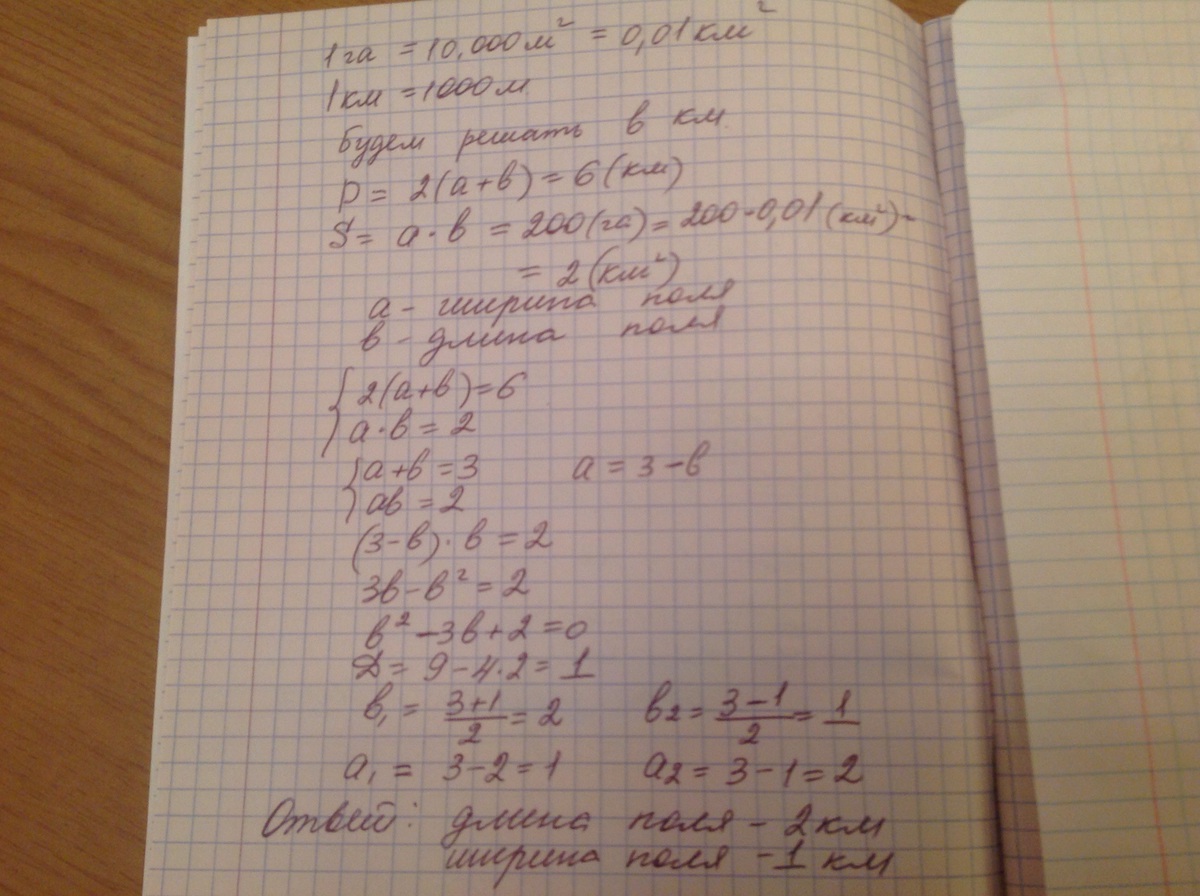 1 га = 10,000 м² = 0,01 км²
1 км = 1000 м
будем решать в км
P = 2(а+в) = 6 (км)
S = а·в = 200 (га) = 200·0,01 (км²) =
= 2 (км²)
а - ширина поля
в - длина поля
{ 2(а+в) = 6
а·в = 2
{ а+в = 3 а = 3-в
ав = 2
(3-в)·в = 2
3в-в² = 2
в²-3в+2=0
D = 9-4·2 = 1
в₁ = (3+1)/2 = 2 в₂ = (3-1)/2 = 1
а₁ = 3-2=1 а₂ = 3-1=2
Ответ: длина поля - 2 км
ширина поля - 1 км